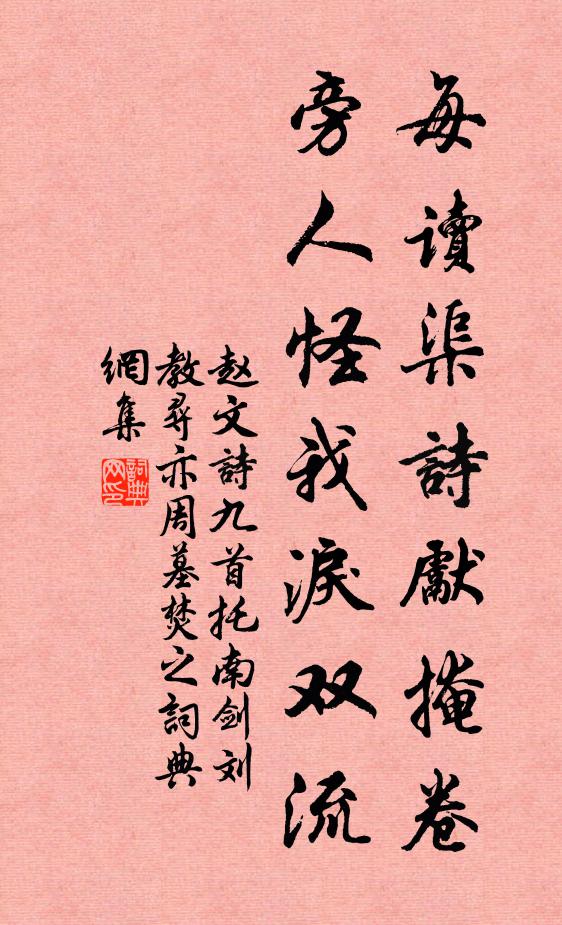 每讀渠詩獻掩卷
旁人怪我淚双流
赵文詩九首托南剑刘
教寻亦周墓焚之詞典
網集
詞典網印